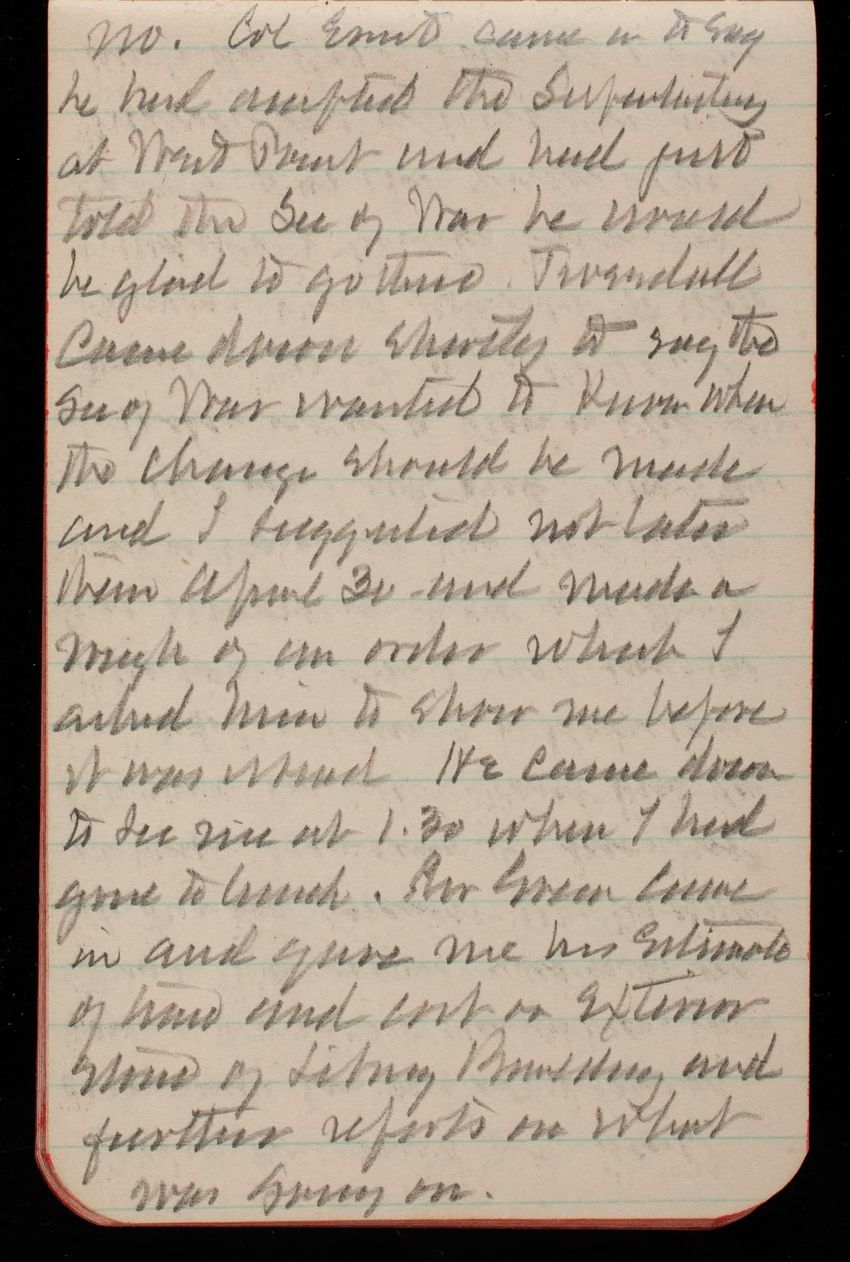 no. Col Ernst came in to say
he had accepted the Superintendency
at West Point and had just
told the Sec of War he would
be glad to go there. Truesdell
came down shortly to say the
Sec of War wanted to know when
the change should be made
and I suggested not later
than April 30 and made a
rough of an order which I
asked him to show me before
it was issued He came down
to see me at 1.30 when I had
gone to lunch. Green came
in and gave me his Estimate
of time and cost on Exterior
stone of Library Building and
further reports on what
was going on.